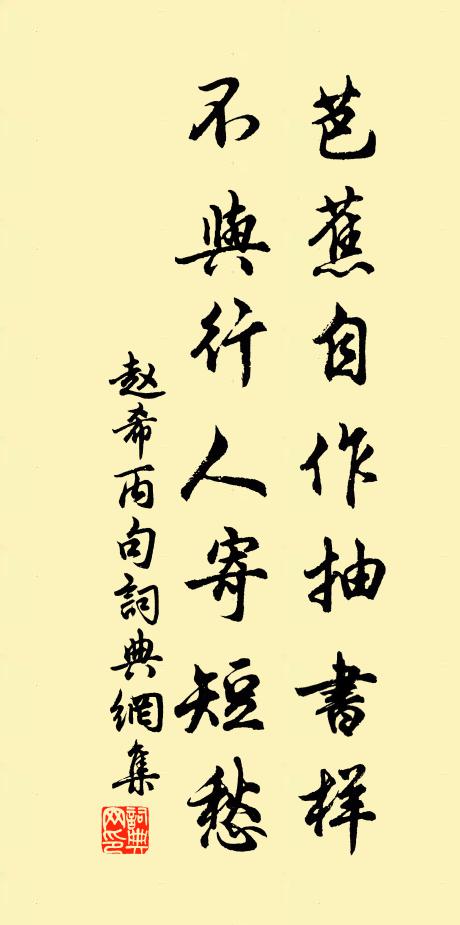 芭蕉自作抽書样
不與行人寄短愁
赵希丙句詞典網集
詞典網印